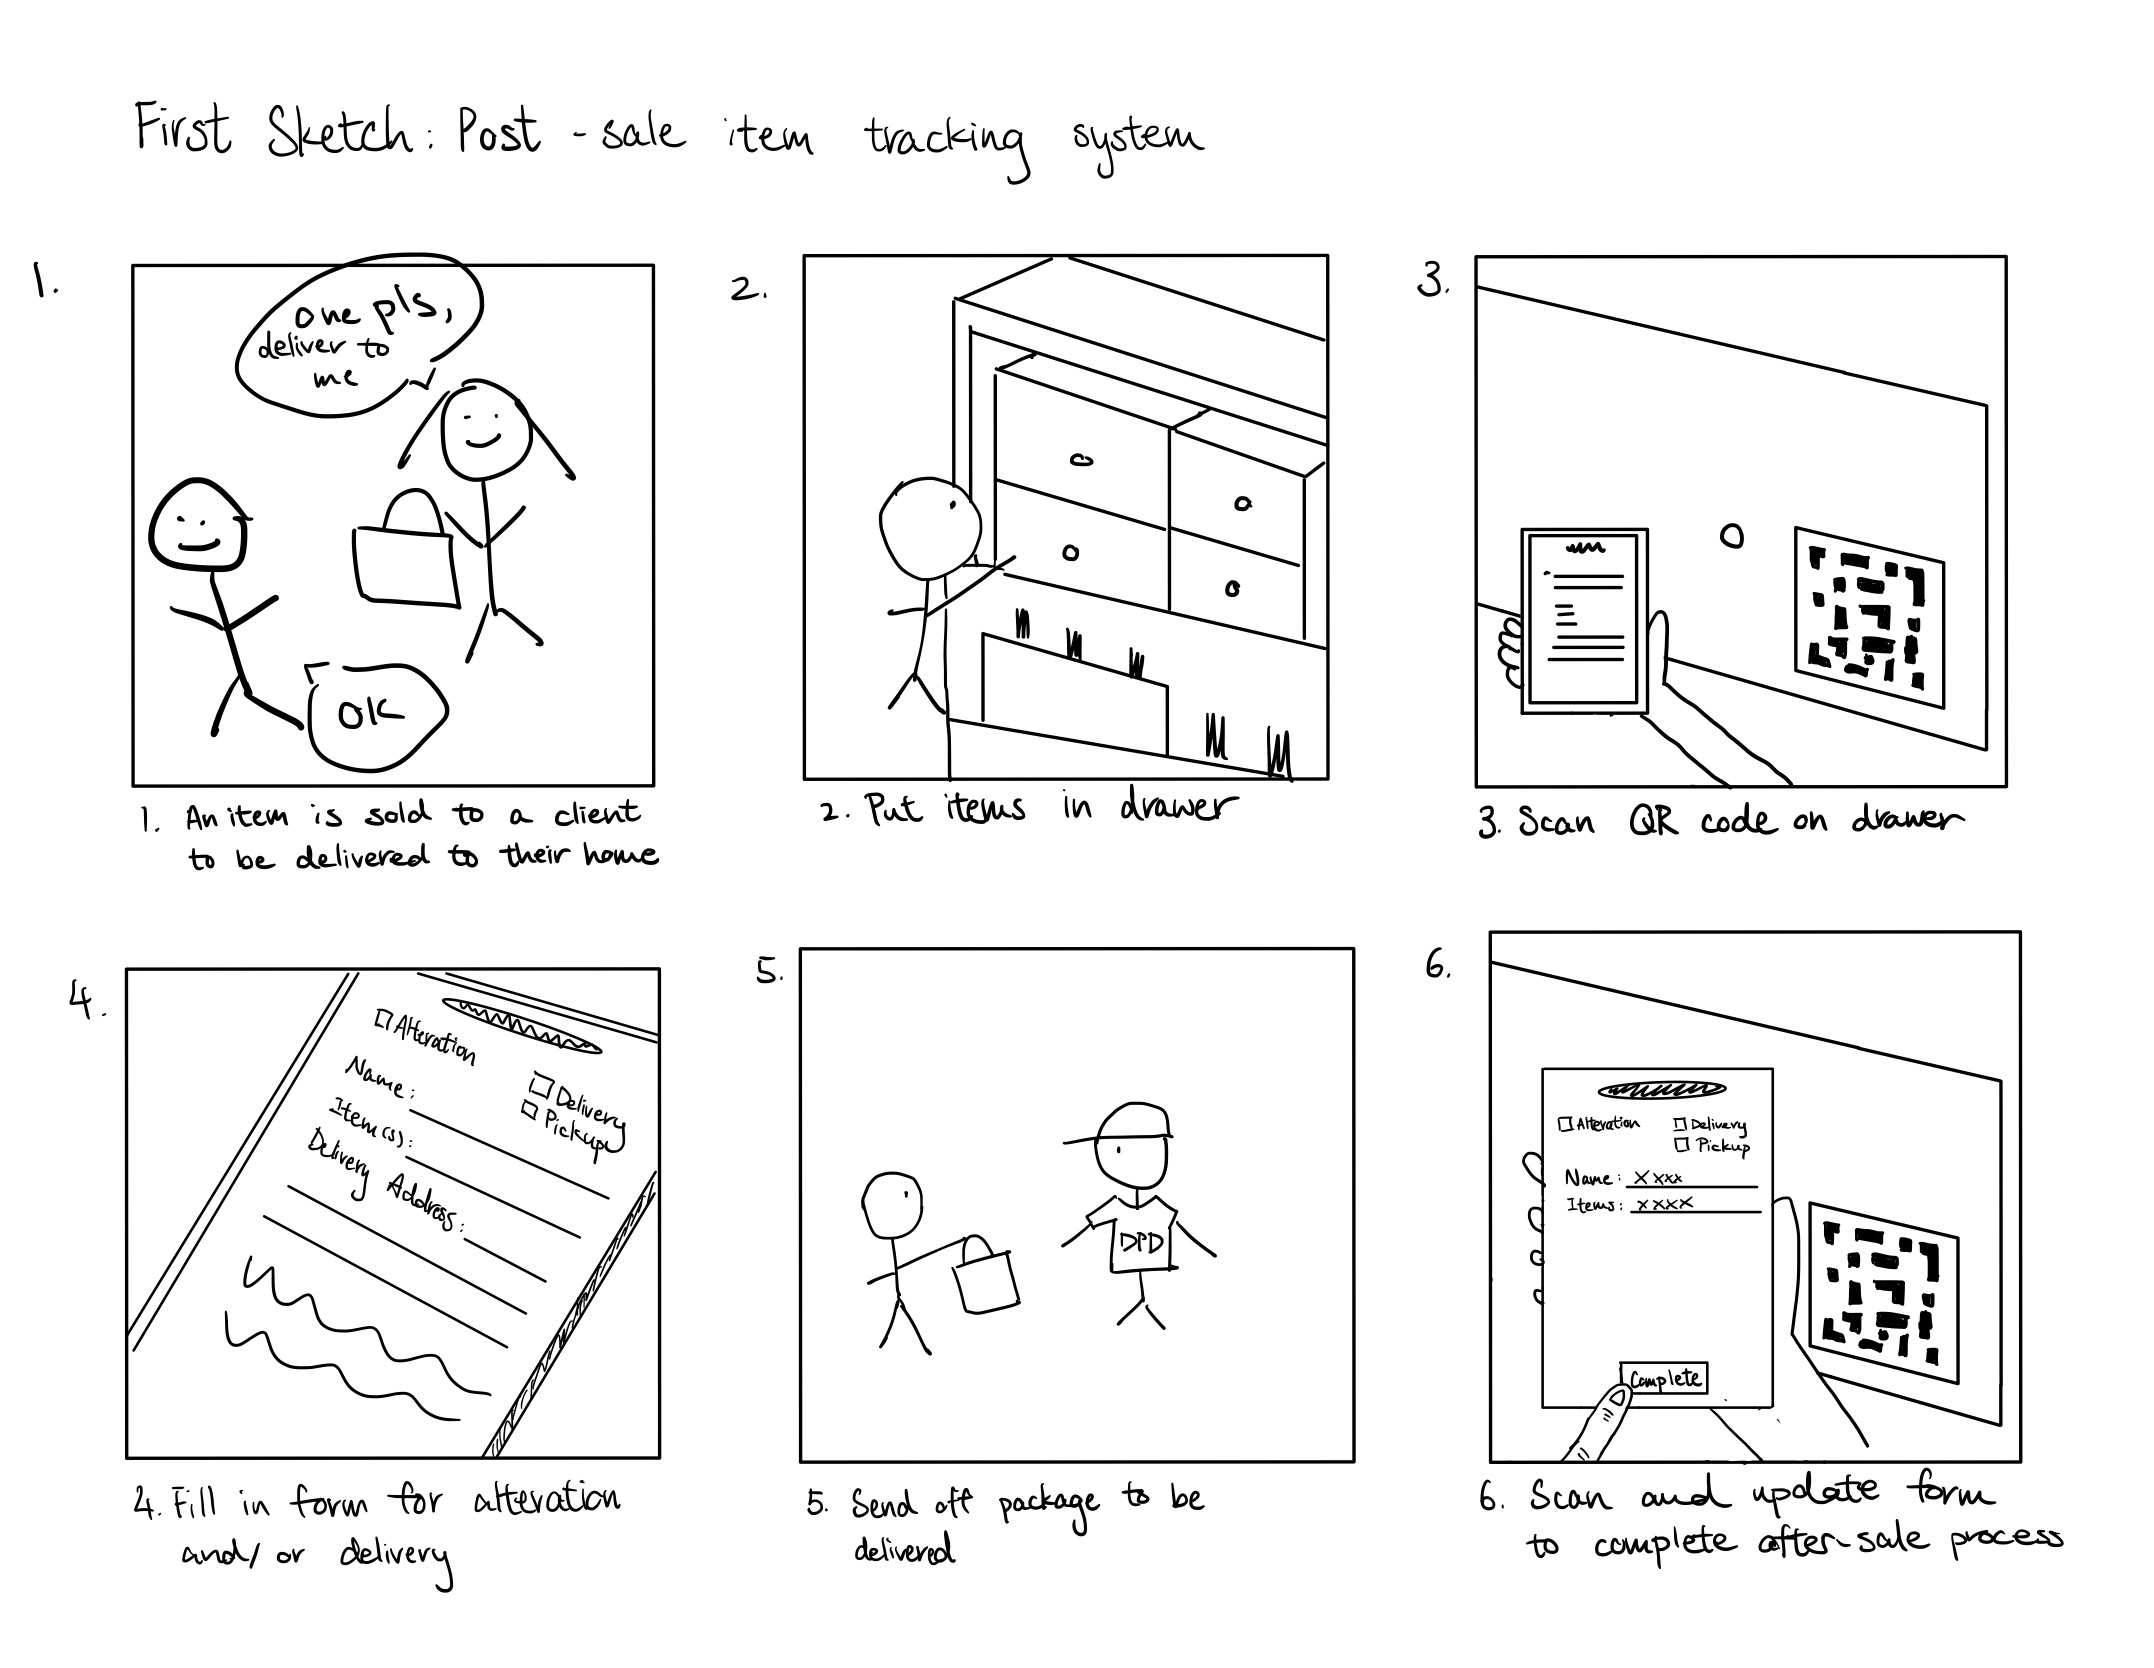 First Sketch: Post-sale item tracking system
1.
one pls,
deliver to
me
OK
1. An item is sold to a client
to be delivered to their home
2.
2. Put items in drawer
3.
3. Scan QR code on drawer
4.
Alteration
Delivery
Pickup
Name:
Item(s):
Delivery Address:
4. Fill in form for alteration
and/or delivery
5.
DPD
5. Send off package to be
delivered
6.
Alteration
Delivery
Pickup
Name: xxxx
Items: xxxx
Complete
6. Scan and update form
to complete after-sale process